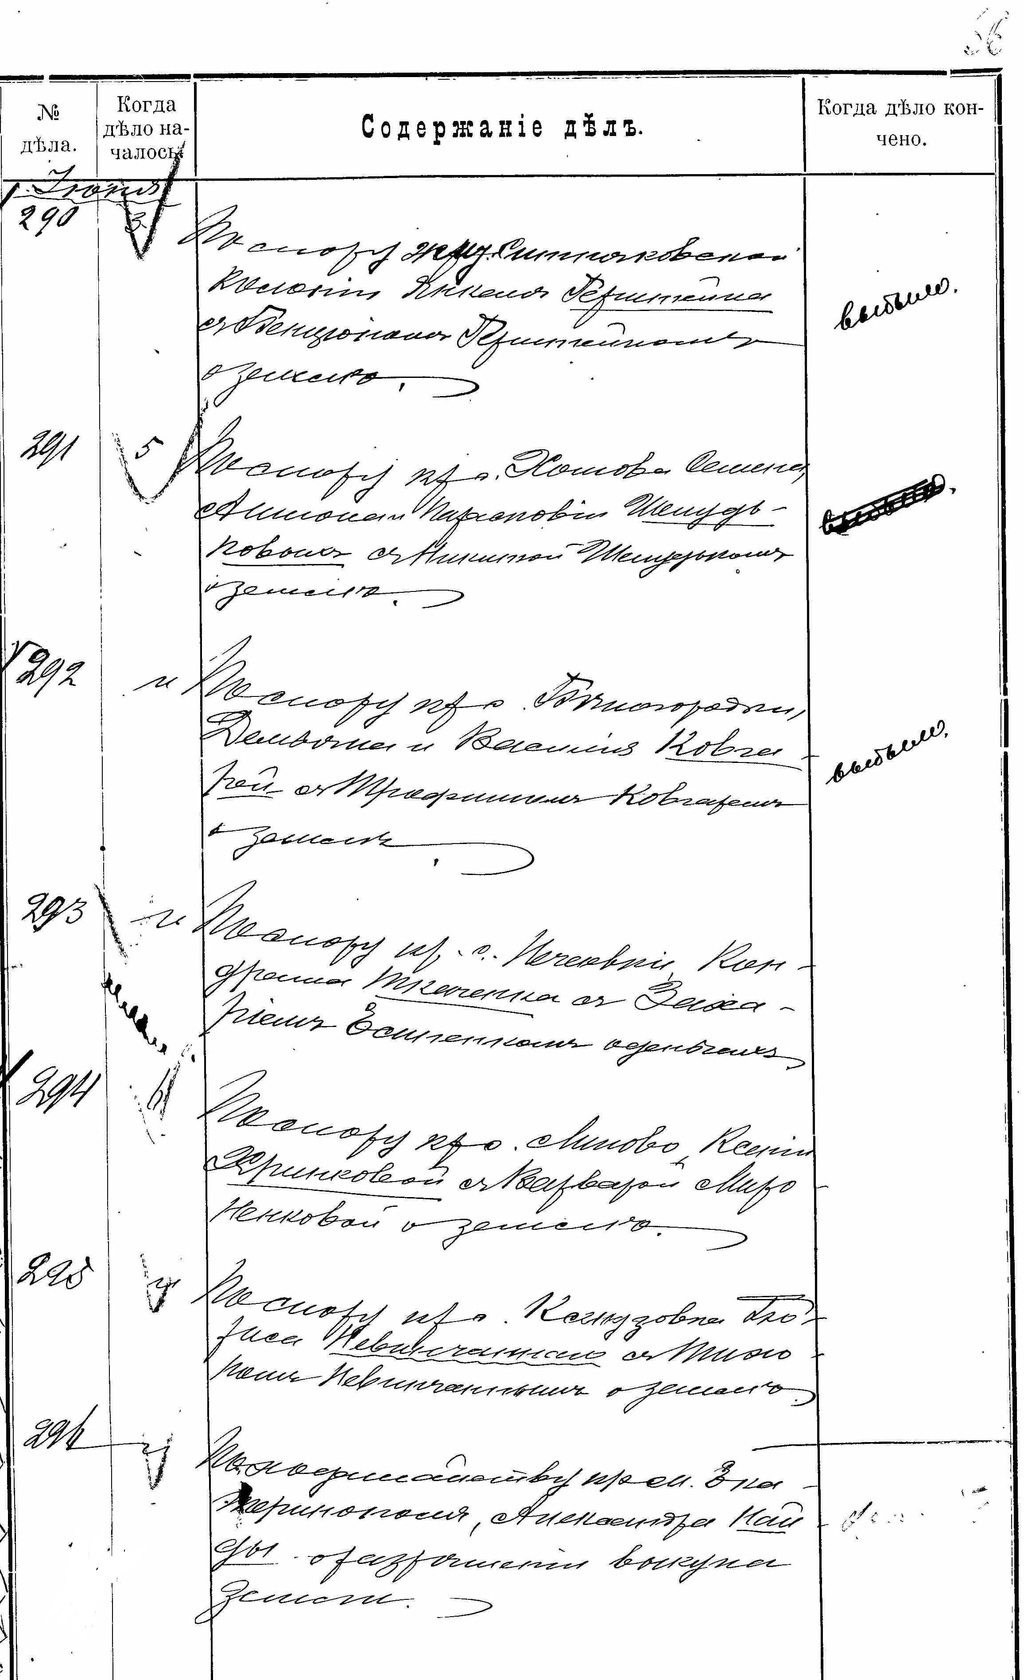 56
№ дѣла.
Когда дѣло на-чалось.
Содержаніе дѣлъ.
Когда дѣло кон-чено.
Іюня
290
3
По спору жит. колоніи Янкеля Герштейна
съ Бенціономъ Герштейномъ
о землю.
выбыло.
291
5
По спору кр. с. Семена,
Антона и Шелудь-
ковыхъ съ Никитой Шелудькомъ
о землю.
292
и
По спору кр. с. Бѣлогородки,
Демьяна и Василія Ковга-
рей съ Трофимомъ Ковгаремъ
о земли
выбыло.
293
и
По спору кр. с. Кон-
драта Ткаченка съ Заха-
ріемъ о деньгахъ
294
6
По спору кр. с. Ксеніи
Хринковой съ Варварой Миро
ненковой о землю.
295
и
По спору кр. с. Бо-
риса Невинчаннаго съ Тихо
номъ Невинчаннымъ о землю
296
и
По ходатайству кр. м. Ека
теринополя, Александра Най
ды о разрѣшеніи выкупа
земли.